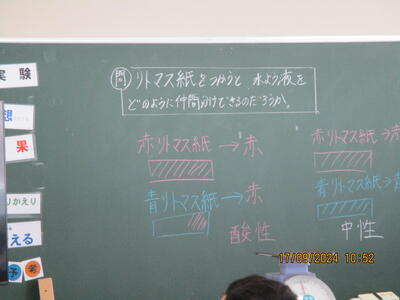 問 リトマス紙をつかうと、水よう液を
どのように仲間分けできるのだろうか。
実験
想
果
りかえり
える
予 考
赤リトマス紙→赤
青リトマス紙→赤
酸性
赤リトマス紙→赤
青リトマス紙→青
中性
17/09/2024 10:52